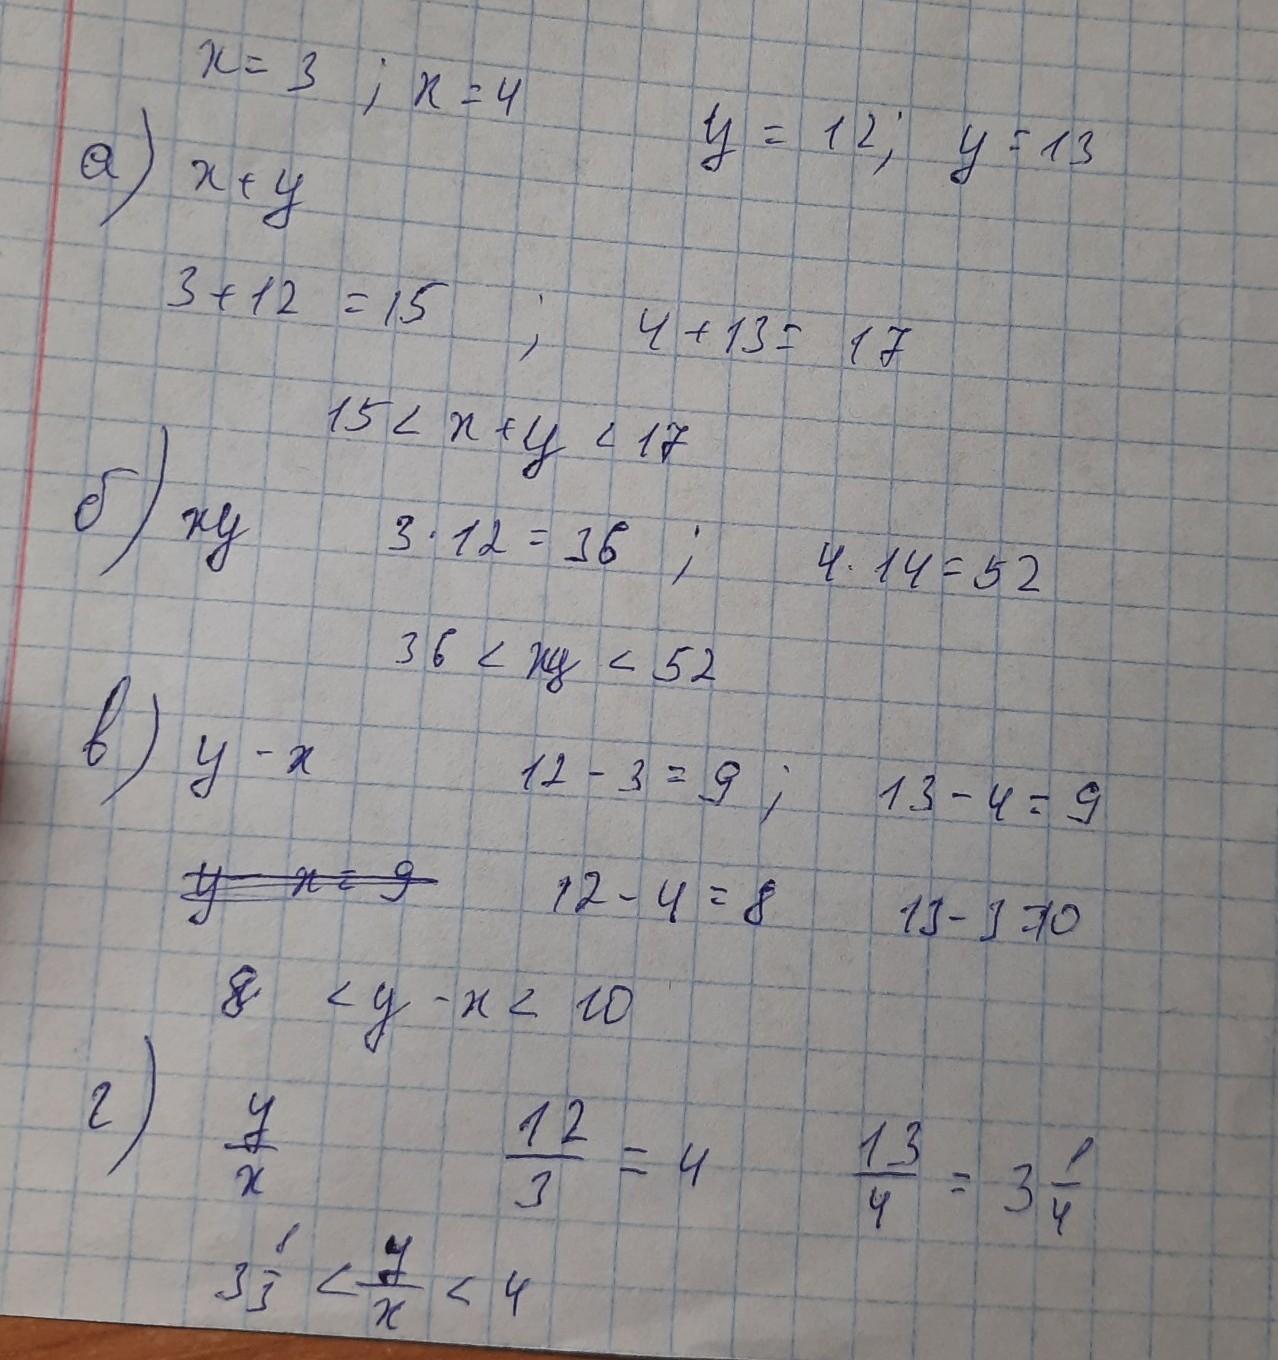 x = 3 ; x = 4 y = 12; y = 13
а) x + y
3 + 12 = 15 ; 4 + 13 = 17
15 < x + y < 17
б) xy 3 · 12 = 36 ; 4 · 14 = 52
36 < xy < 52
в) y - x 12 - 3 = 9 ; 13 - 4 = 9
y - x = 9 12 - 4 = 8 13 - 3 = 10
8 < y - x < 10
г) y/x 12/3 = 4 13/4 = 3 1/4
3 1/3 < y/x < 4